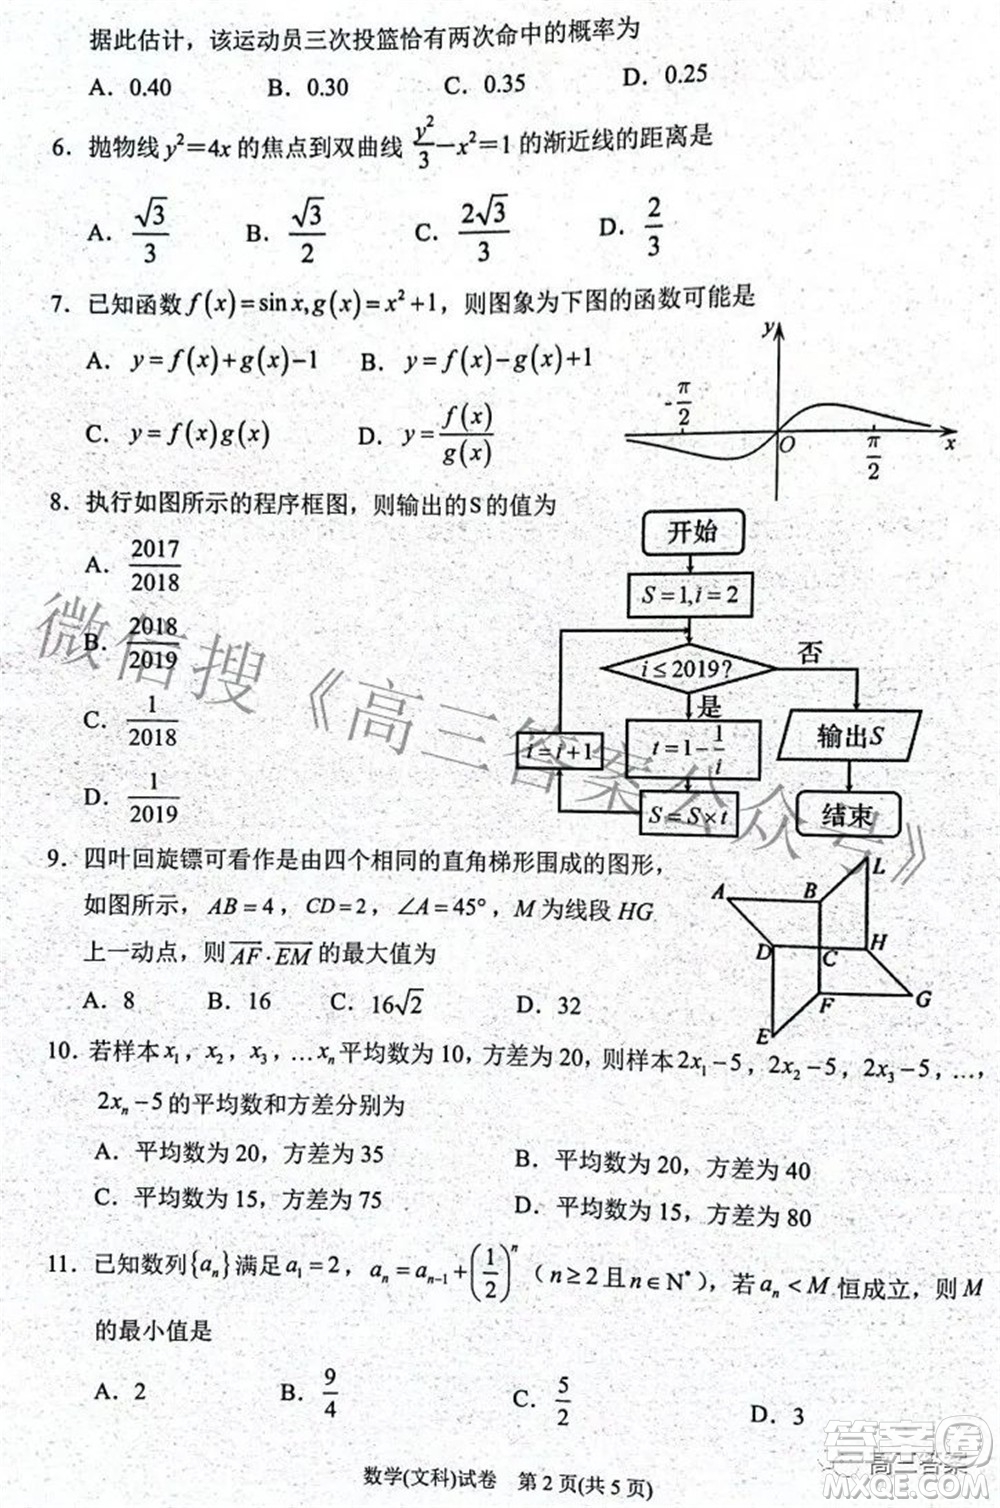 据此估计，该运动员三次投篮恰有两次命中的概率为
A．0.40 B．0.30 C．0.35 D．0.25
6．抛物线 y²=4x 的焦点到双曲线 y²/3−x²=1 的渐近线的距离是
A．√3/3 B．√3/2 C．2√3/3 D．2/3
7．已知函数 f(x)=sin x,g(x)=x²+1，则图象为下图的函数可能是
A．y=f(x)+g(x)−1 B．y=f(x)−g(x)+1
C．y=f(x)g(x) D．y=f(x)/g(x)
y
-π/2
O
π/2
x
8．执行如图所示的程序框图，则输出的S的值为
A．2017/2018
B．2018/2019
C．1/2018
D．1/2019
开始
S=1,i=2
i≤2019?
否
是
t=1−1/i
i=i+1
S=S×t
输出S
结束
9．四叶回旋镖可看作是由四个相同的直角梯形围成的图形，
如图所示，AB=4，CD=2，∠A=45°，M为线段HG
上一动点，则 AF·EM 的最大值为
A．8 B．16 C．16√2 D．32
A B L
D C H
E F G
10．若样本 x₁，x₂，x₃，…xₙ平均数为10，方差为20，则样本 2x₁−5，2x₂−5，2x₃−5，…，
2xₙ−5的平均数和方差分别为
A．平均数为20，方差为35 B．平均数为20，方差为40
C．平均数为15，方差为75 D．平均数为15，方差为80
11．已知数列{aₙ}满足a₁=2，aₙ=aₙ₋₁+(1/2)ⁿ（n≥2且n∈N*），若aₙ<M 恒成立，则M
的最小值是
A．2 B．9/4 C．5/2 D．3
数学(文科)试卷 第2页(共5页)
微信搜《高三答案公众号》
答案圈
高三答案
MXQE.COM